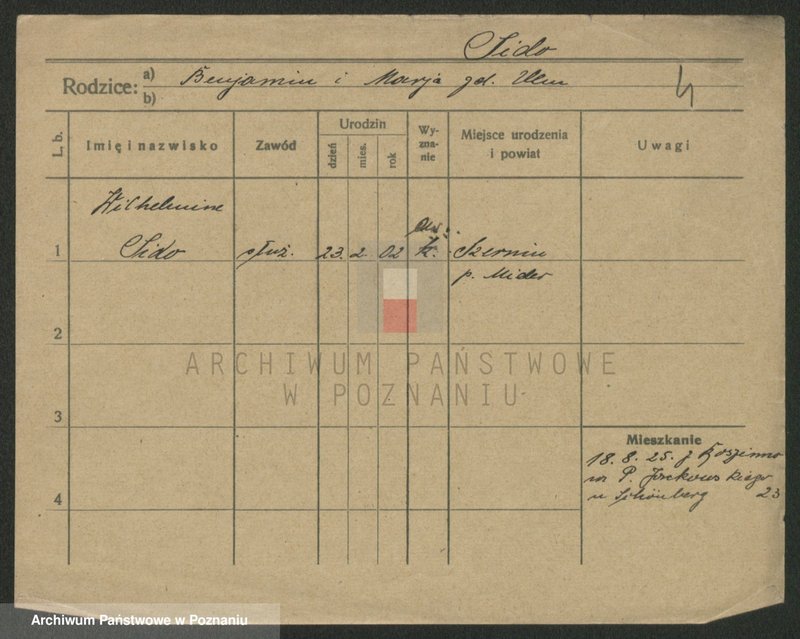 Sido
Rodzice: a) Benjamin i Marja zd. Ulm
b)
L. b.
Imię i nazwisko
Zawód
Urodzin
dzień
mies.
rok
Wy-
zna-
nie
Miejsce urodzenia
i powiat
Uwagi
Wilhelmine
1 Sido służ. 23. 2. 02 Szernin
p. Mider
2
3
4
Mieszkanie
18. 8. 25. z
P.
u Schönberg 23
ARCHIWUM PAŃSTWOWE
W POZNANIU
Archiwum Państwowe w Poznaniu